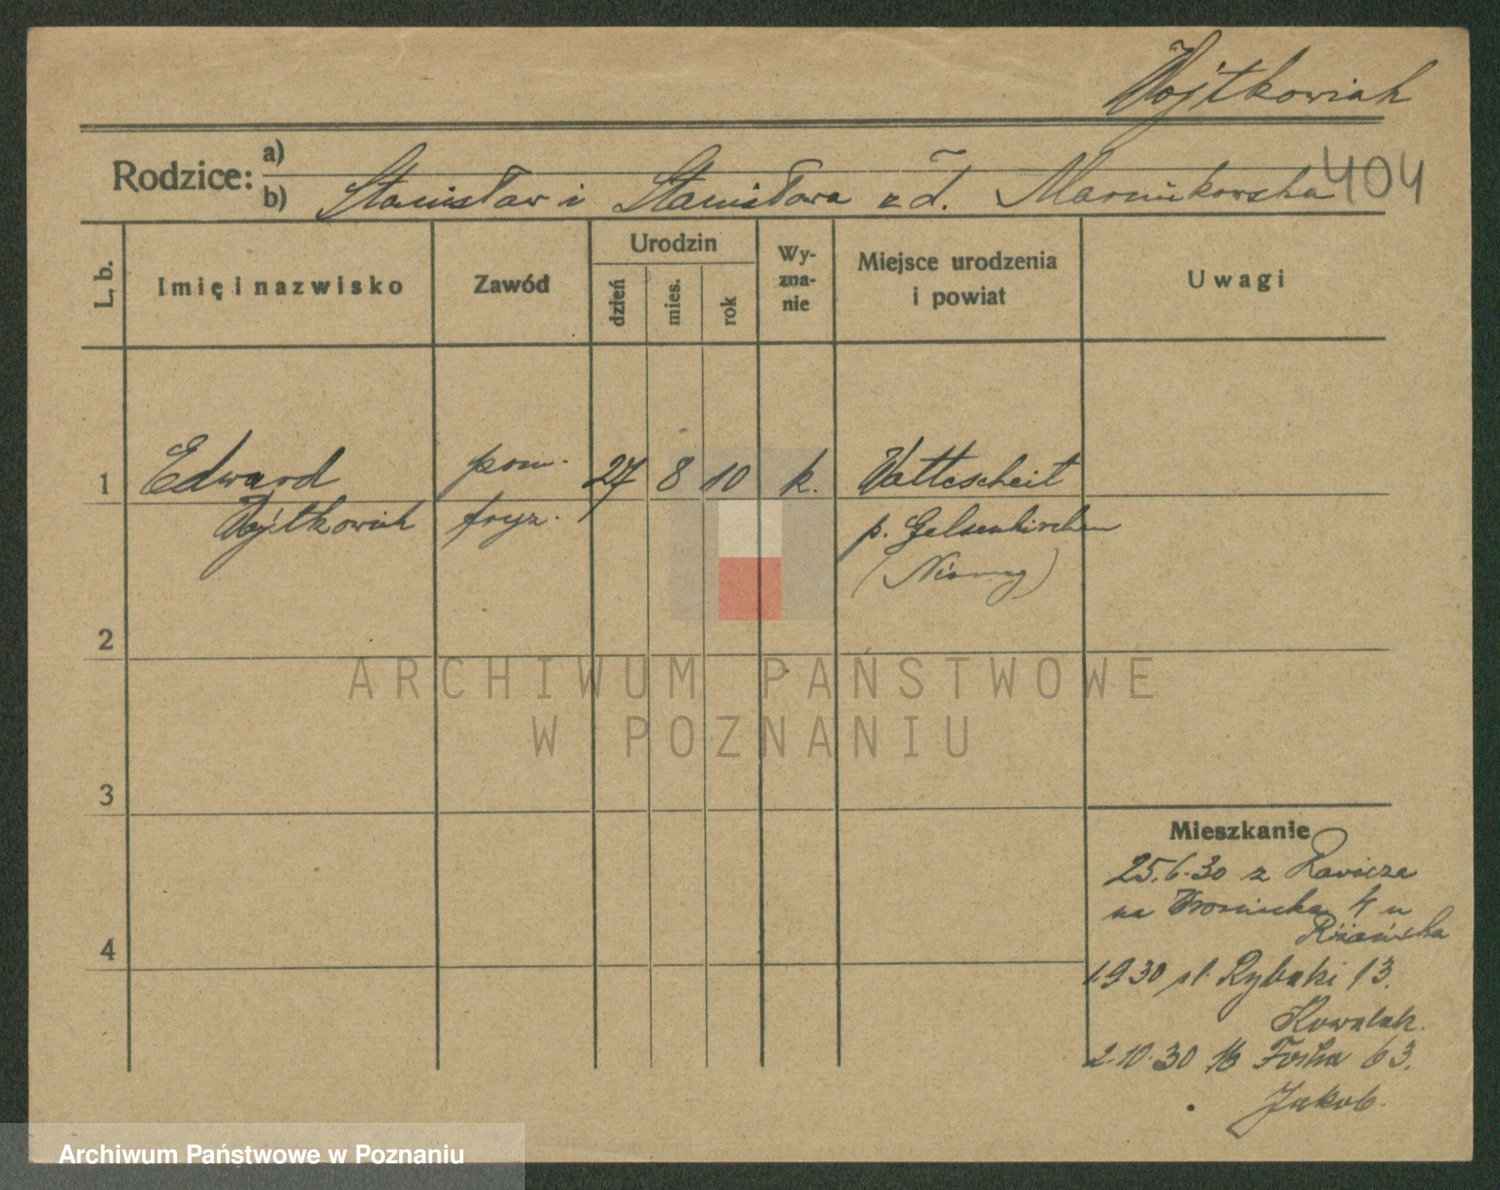 Wojtkowiak
Rodzice: a)
b) Stanisław i Stanisława z d. Marcinkowska 404
L. b. Imię i nazwisko Zawód Urodzin dzień mies. rok Wyznanie Miejsce urodzenia i powiat Uwagi
1 Edward pom. 27 8 10 k. Wattescheit
Wojtkowiak fryz. p. Gelsenkirchen
(Niemcy)
2
ARCHIWUM PAŃSTWOWE
W POZNANIU
3
Mieszkanie
25.6.30 z Rawicza
na 4 u
4
1.9.30 Rybaki 13.
Kowalak.
2.10.30 Focha 63.
Jakob.
Archiwum Państwowe w Poznaniu